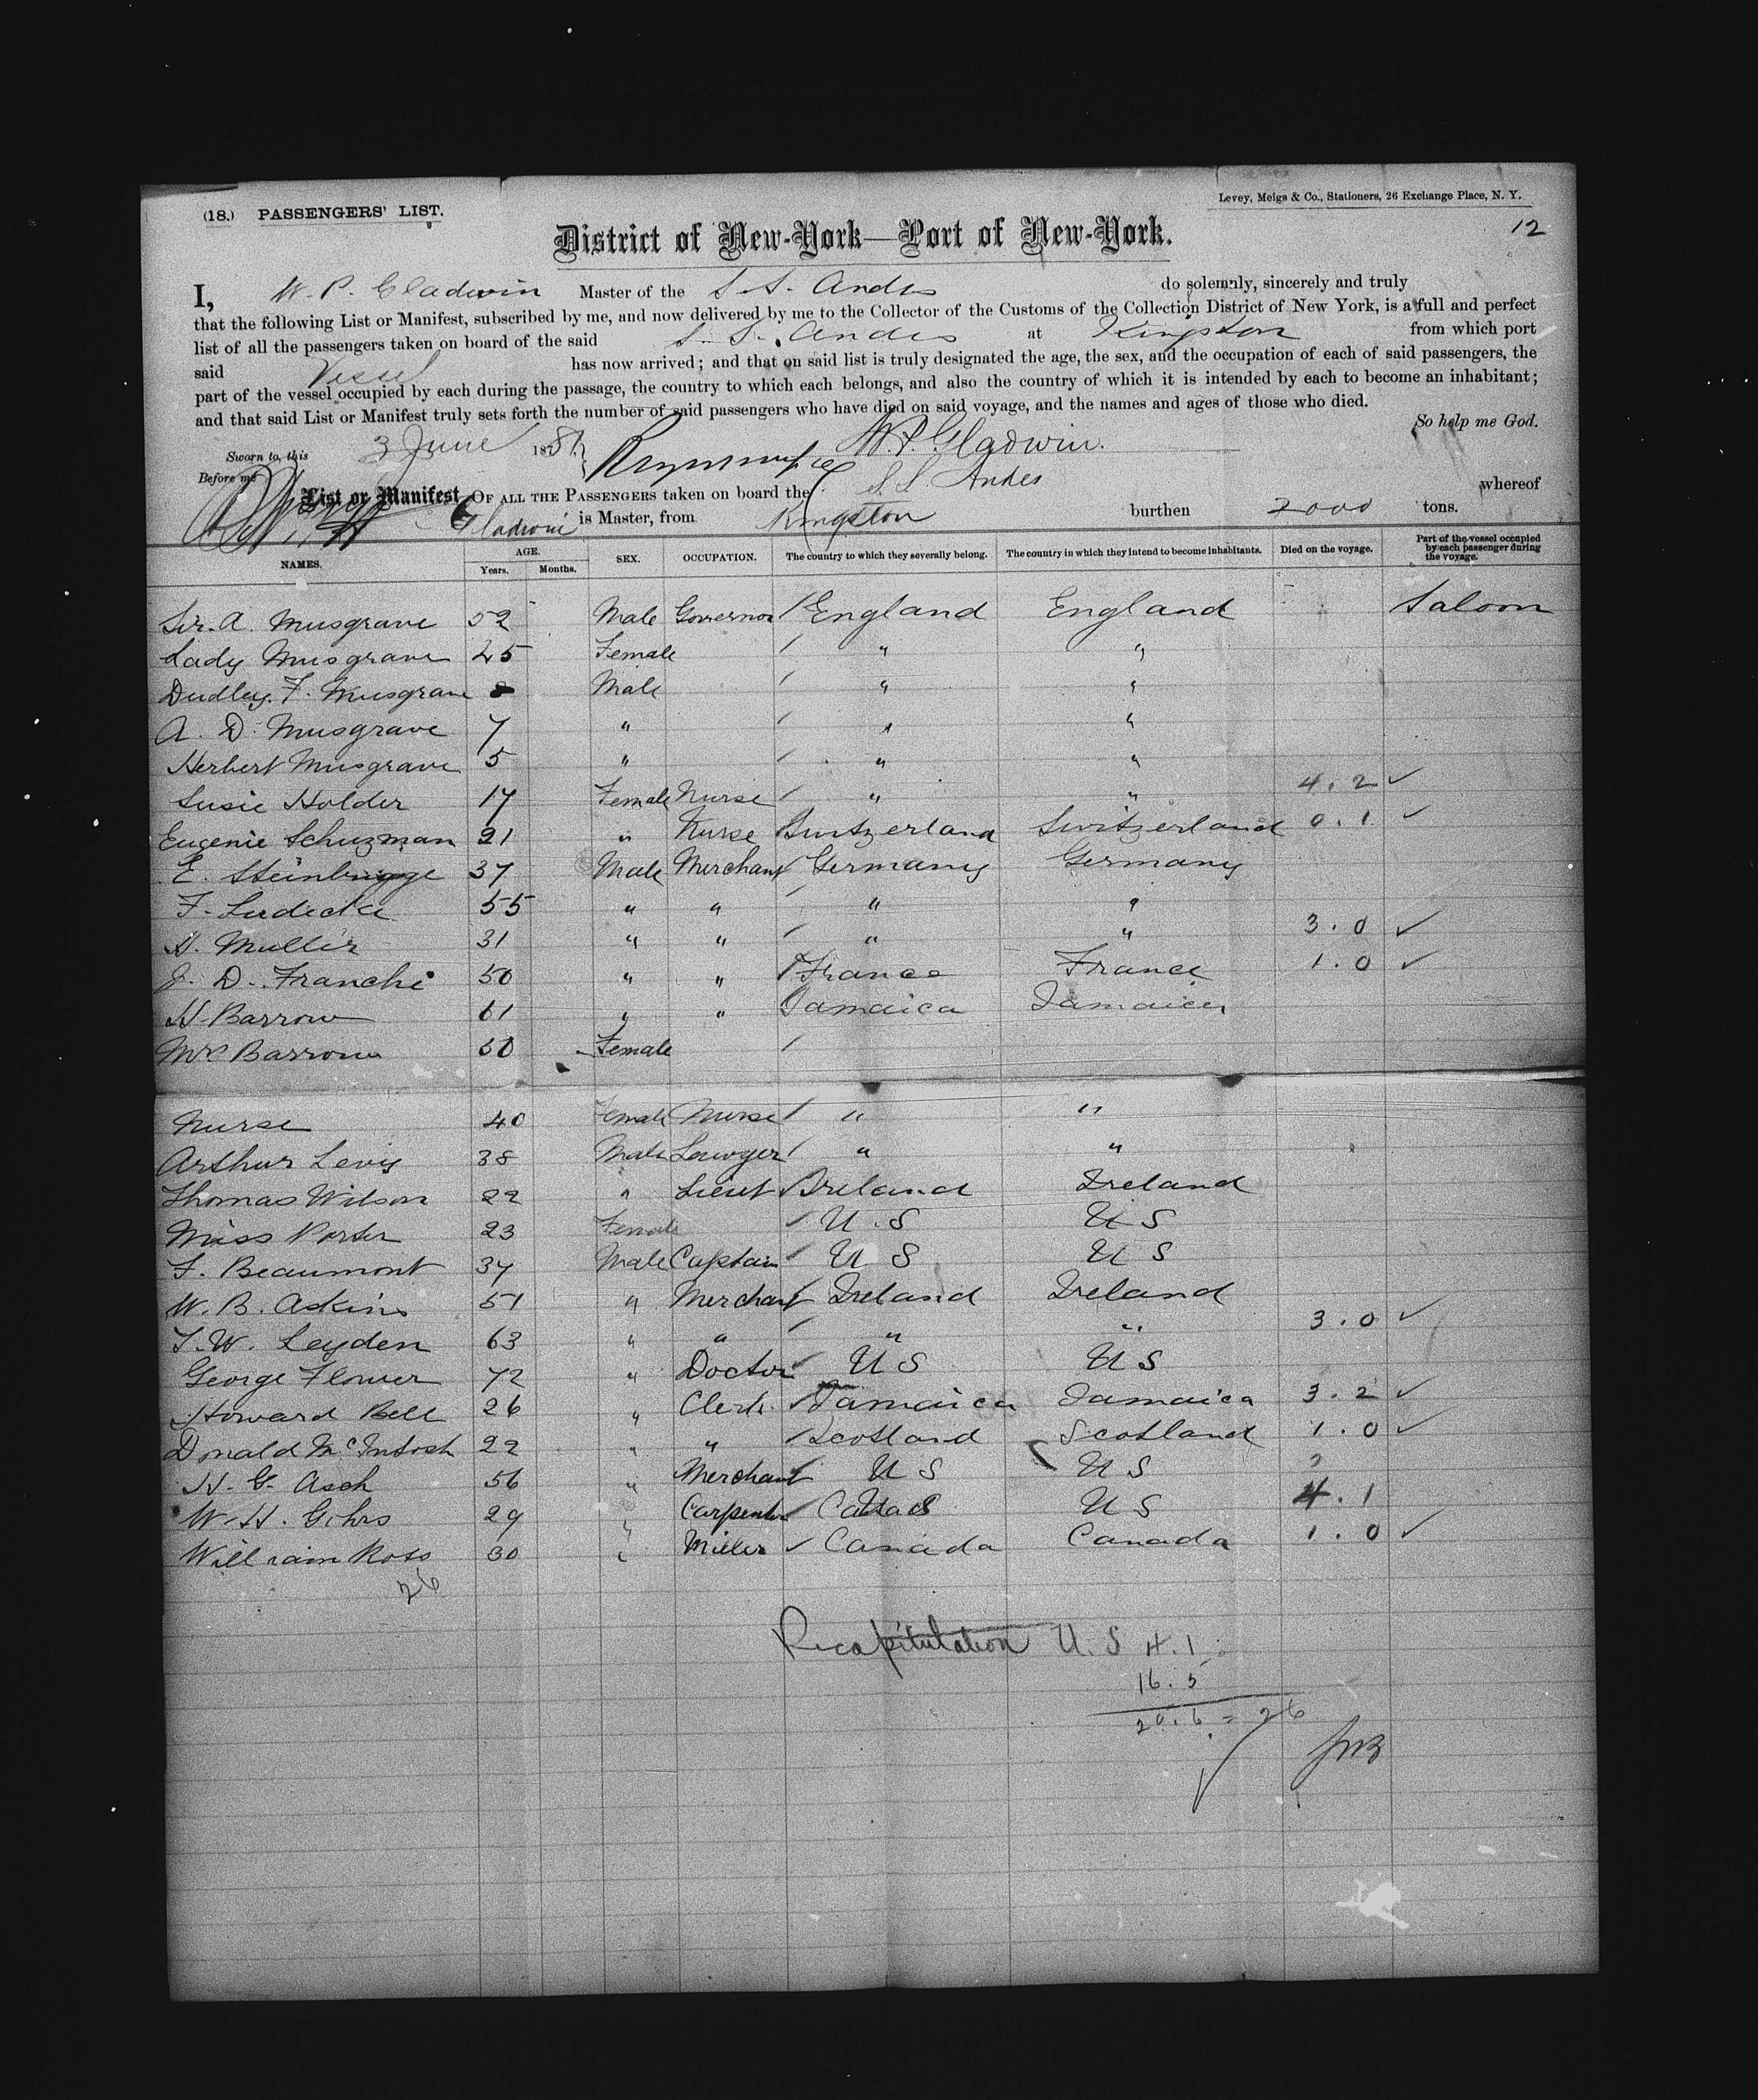 (18.) PASSENGERS' LIST.
Levey, Meigs & Co., Stationers, 26 Exchange Place, N. Y.
12
District of New-York—Port of New-York.
I, W. P. Gladwin Master of the S. S. Andes do solemnly, sincerely and truly
that the following List or Manifest, subscribed by me, and now delivered by me to the Collector of the Customs of the Collection District of New York, is a full and perfect
list of all the passengers taken on board of the said S. S. Andes at Kingston from which port
said Vessel has now arrived; and that on said list is truly designated the age, the sex, and the occupation of each of said passengers, the
part of the vessel occupied by each during the passage, the country to which each belongs, and also the country of which it is intended by each to become an inhabitant;
and that said List or Manifest truly sets forth the number of said passengers who have died on said voyage, and the names and ages of those who died.
So help me God.
Sworn to, this 3 June 1881 W. P. Gladwin.
Before me
List or Manifest OF ALL THE PASSENGERS taken on board the S. S Andes whereof
Gladwin is Master, from Kingston burthen 2000 tons.
NAMES. AGE. Years. Months. SEX. OCCUPATION. The country to which they severally belong. The country in which they intend to become inhabitants. Died on the voyage. Part of the vessel occupied by each passenger during the voyage.
Sir. A. Musgrave 52 Male Governor England England Saloon
Lady Musgrave 45 Female " "
Dudley. F. Musgrave 8 Male " "
A. D. Musgrave 7 " " "
Herbert Musgrave 5 " " "
Susie Holder 17 Female Nurse " " 4.2 ✓
Eugenie Schuzman 21 " Nurse Switzerland Switzerland 0.1 ✓
E. Steinbrugge 37 Male Merchant Germany Germany
F. Ludecke 55 " " " "
H. Muller 31 " " " " 3.0 ✓
J. D. Franchi 50 " " France France 1.0 ✓
H. Barrow 61 " " Jamaica Jamaica
Mrs Barrow 50 Female
Nurse 40 Female Nurse " "
Arthur Levy 38 Male Lawyer " "
Thomas Wilson 22 " Lieut Ireland Ireland
Miss Porter 23 Female U. S U S
F. Beaumont 37 Male Captain U S U S
W. B. Askins 51 " Merchant Ireland Ireland
T. W. Leyden 63 " " " " 3.0 ✓
George Flower 72 " Doctor U S U S
Howard Bell 26 " Clerk Jamaica Jamaica 3.2 ✓
Donald McIntosh 22 " " Scotland Scotland 1.0 ✓
H. G. Asch 56 " Merchant U S U S
W. H. Gihrs 29 " Carpenter U S U S 4.1
William Ross 30 " Miller Canada Canada 1.0 ✓
26
Recapitulation U. S 4.1
16.5
20.6 = 26